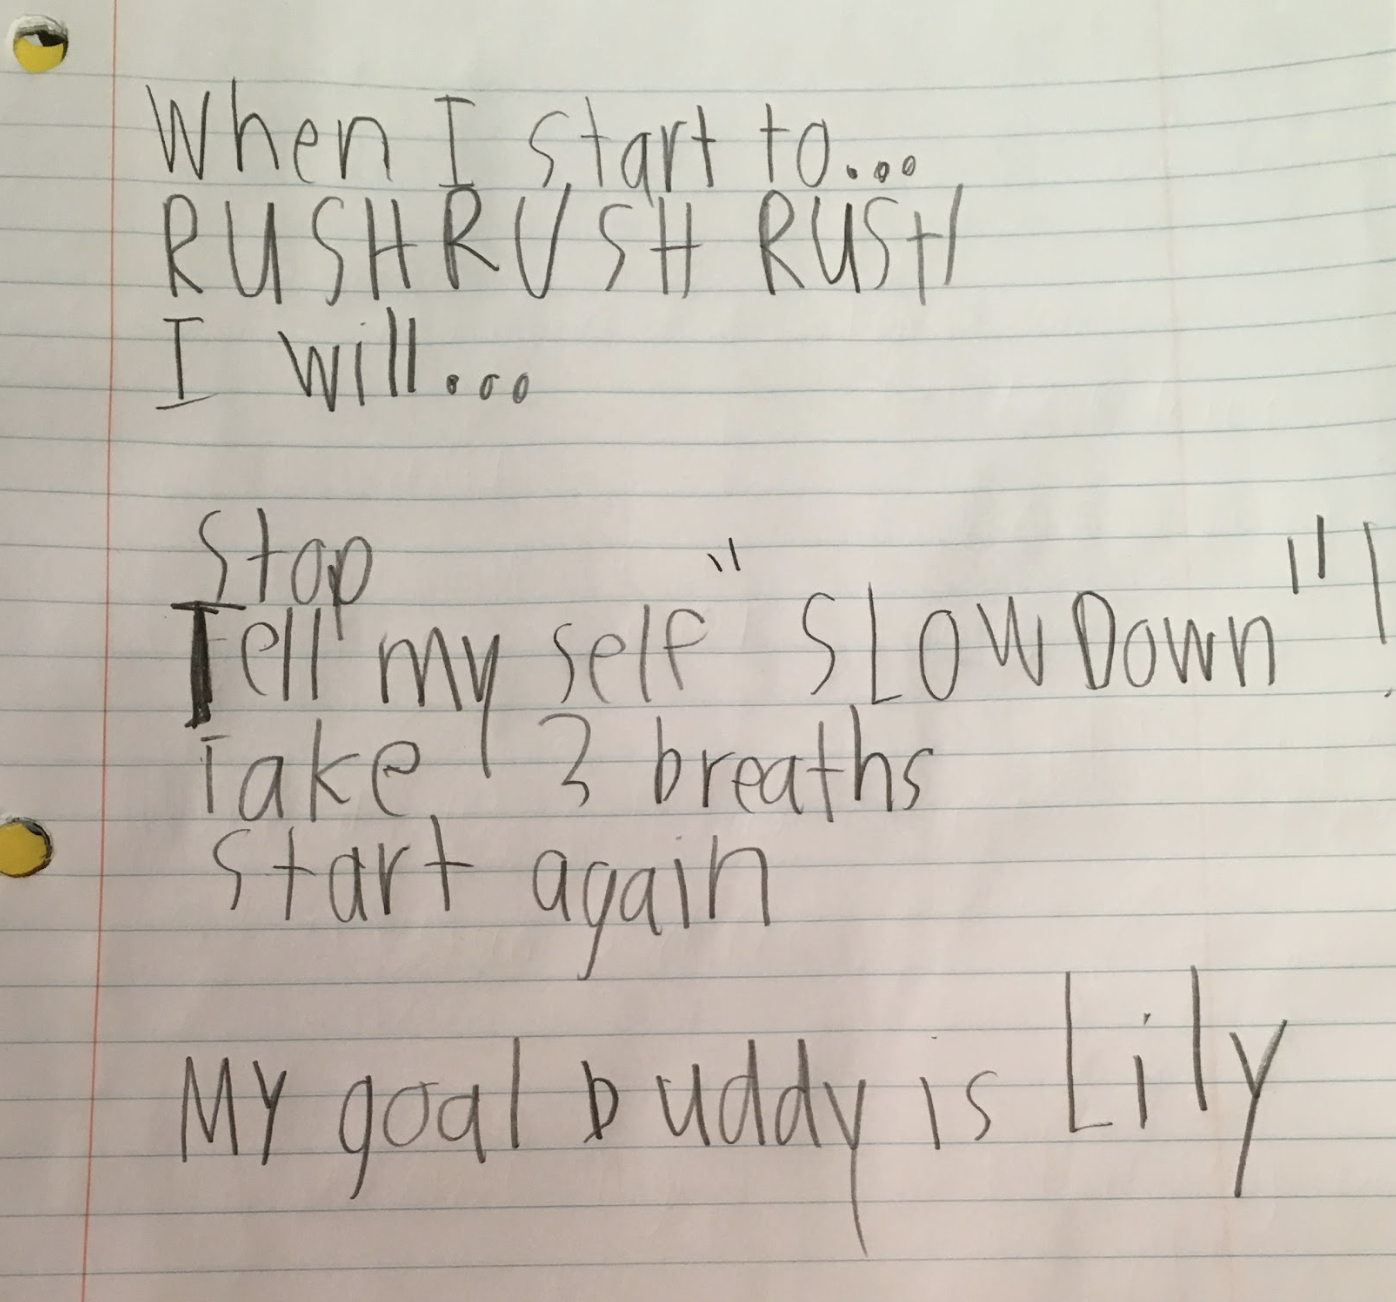 When I start to...
RUSH RUSH RUSH
I will...
Stop
Tell my self "SLOW Down"!
Take 3 breaths
Start again
My goal buddy is Lily